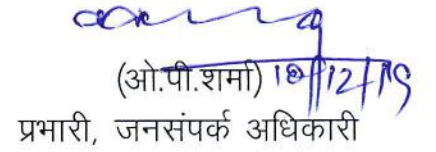 (ओ.पी.शर्मा) 10/12/19
प्रभारी, जनसंपर्क अधिकारी